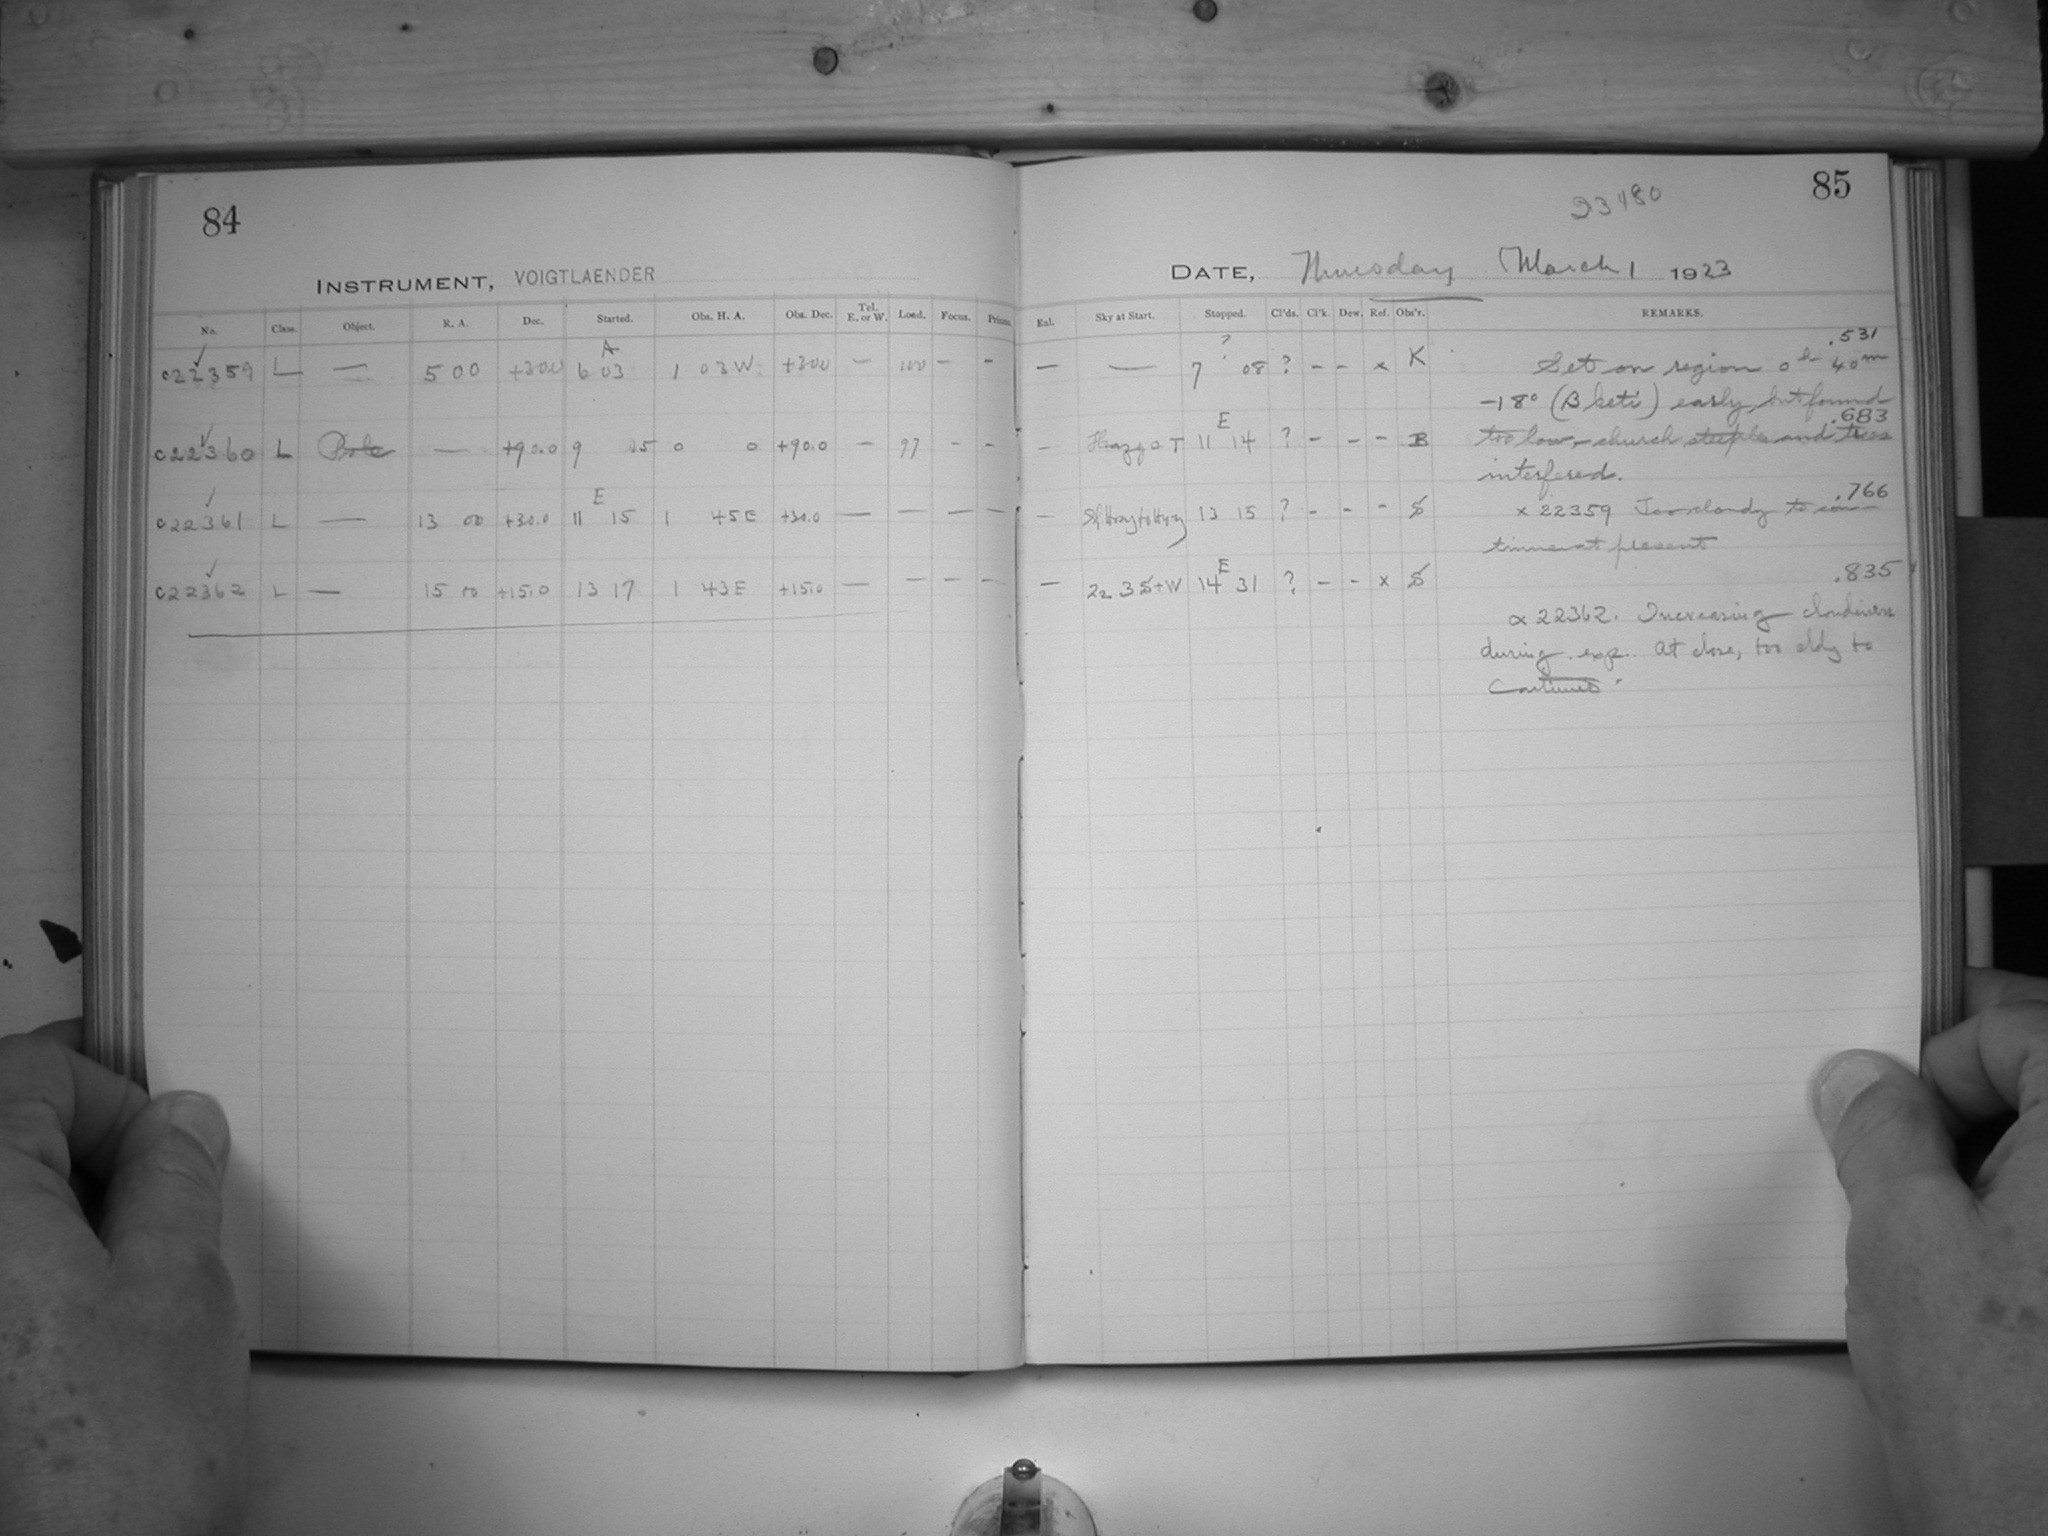 84
INSTRUMENT, VOIGTLAENDER
No. Class. Object. R. A. Dec. Started. Obs. H. A. Obs. Dec. Tel. E. or W. Load. Focus. Prisms.
A
c22359 L — 5 00 +30.0 6 03 1 03 W +30.0 — 100 – –
c22360 L Pole — +90.0 9 05 0 0 +90.0 – 97 – –
E
c22361 L — 13 00 +30.0 11 15 1 45 E +30.0 — — — —
c22362 L — 15 00 +15.0 13 17 1 43 E +15.0 — — — —
23480
85
DATE, Thursday March 1 1923
Enl. Sky at Start. Stopped. Cl'ds. Cl'k. Dew. Ref. Obs'r. REMARKS.
?
— — 7 08 ? – – x K
E
— 11 14 ? – – – B
— 13 15 ? – – – S
E
— 14 31 ? – – x S
.531
Set on region 0h 40m
-18° (B keti) early, but found
.683
too low,– church steeple and trees
interfered.
.766
x 22359 Too cloudy to con–
tinue at present
.835
x 22362. Increasing cloudiness
during exp. At close, too cldy to
continue.